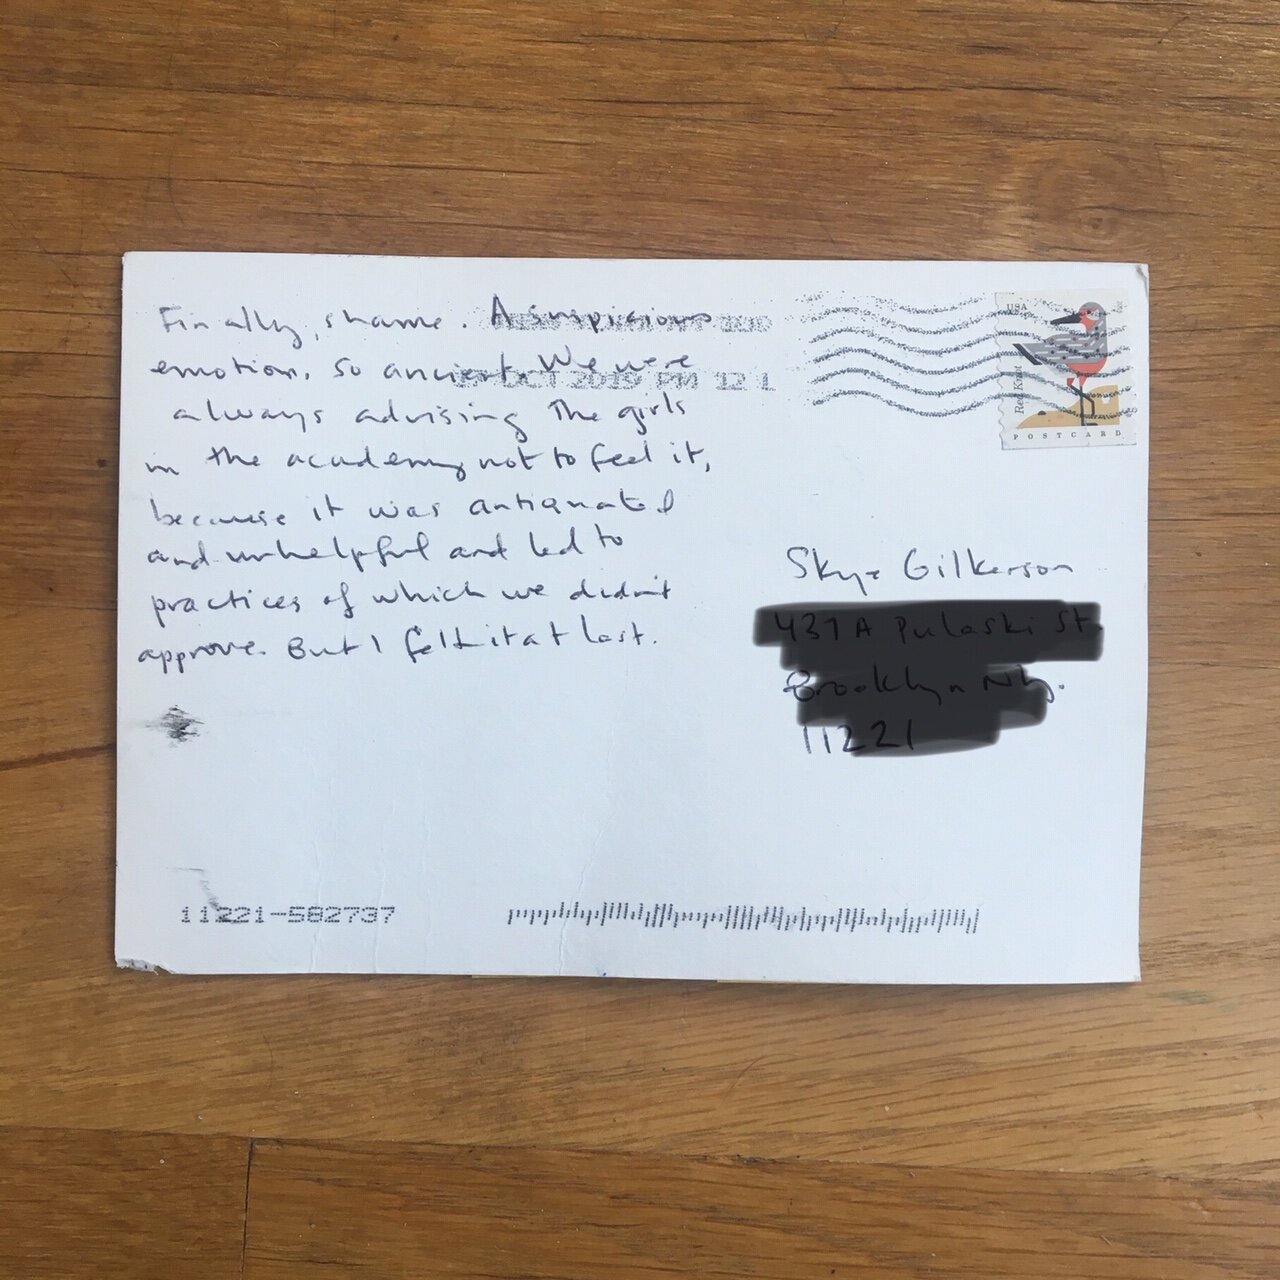 Finally, shame. A suspicious
emotion, so ancient. We were
always advising the girls
in the academy not to feel it,
because it was antiquated
and unhelpful and led to
practices of which we didn't
approve. But I felt it at last.
OCT 2019 PM 12
USA
Red Knot
POSTCARD
Skye Gilkerson
11221-582737